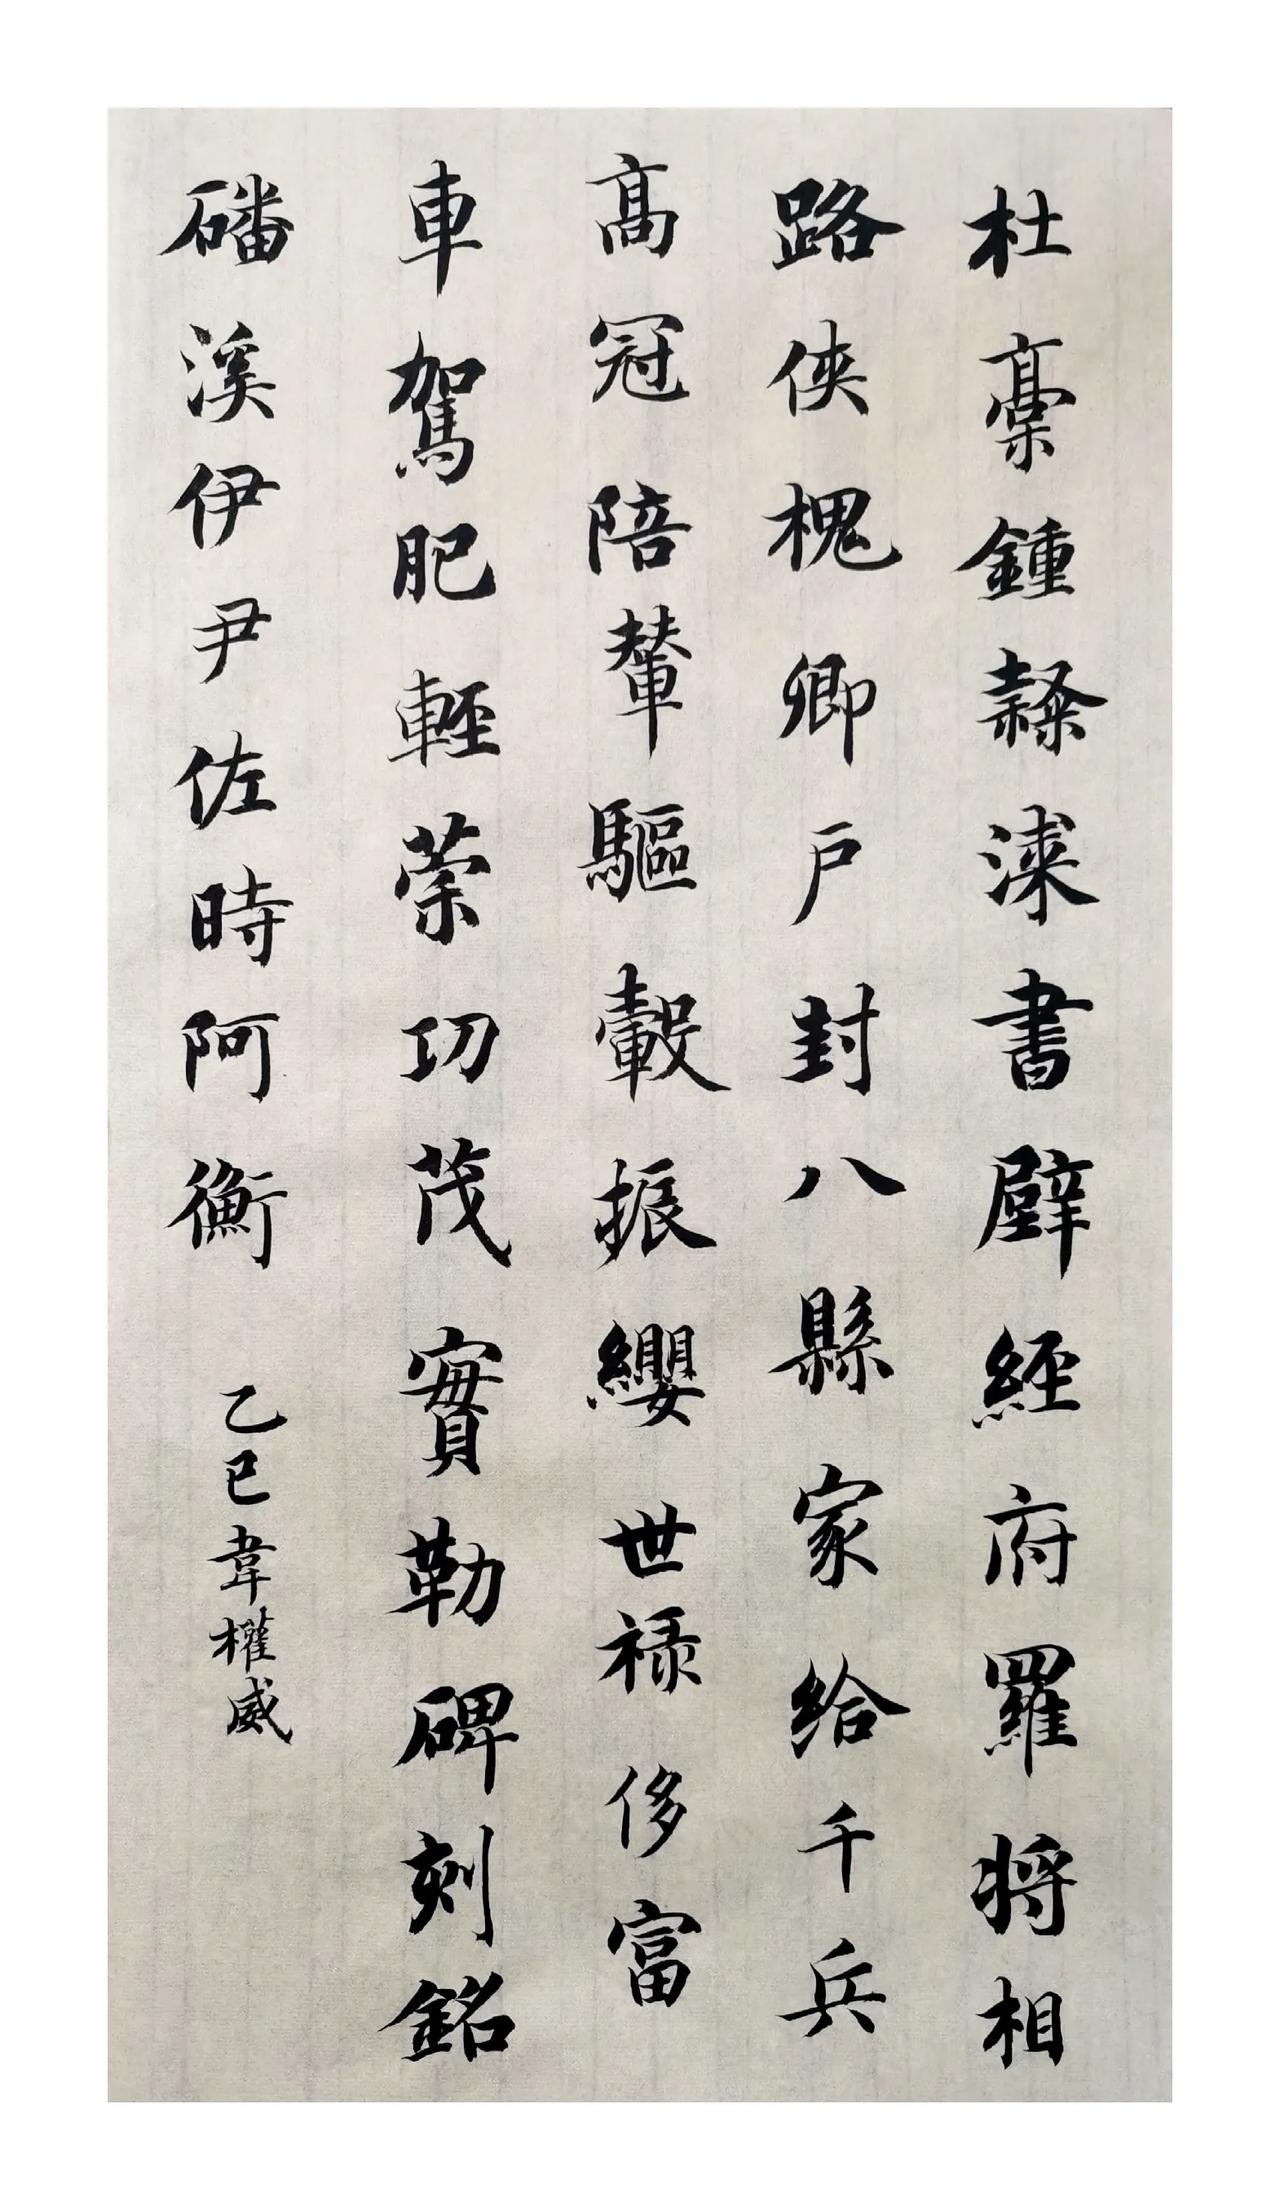 杜稾鍾隸漆書壁經府羅將相
路俠槐卿戶封八縣家給千兵
高冠陪輦驅轂振纓世祿侈富
車駕肥輕策功茂實勒碑刻銘
磻溪伊尹佐時阿衡 乙巳韋權威